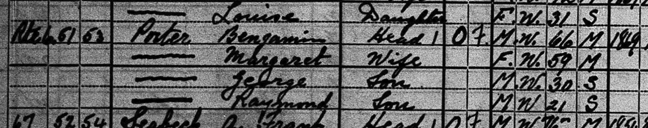 Louise Daughter F. W. 31 S
51 53 Porter Benjamin Head 1 O F. M. W. 66 M 1869
Margaret Wife F. W. 59 M
George Son M W. 30 S
Raymond Son M W 21 S
67 52 54 Frank Head 1 O F M W M